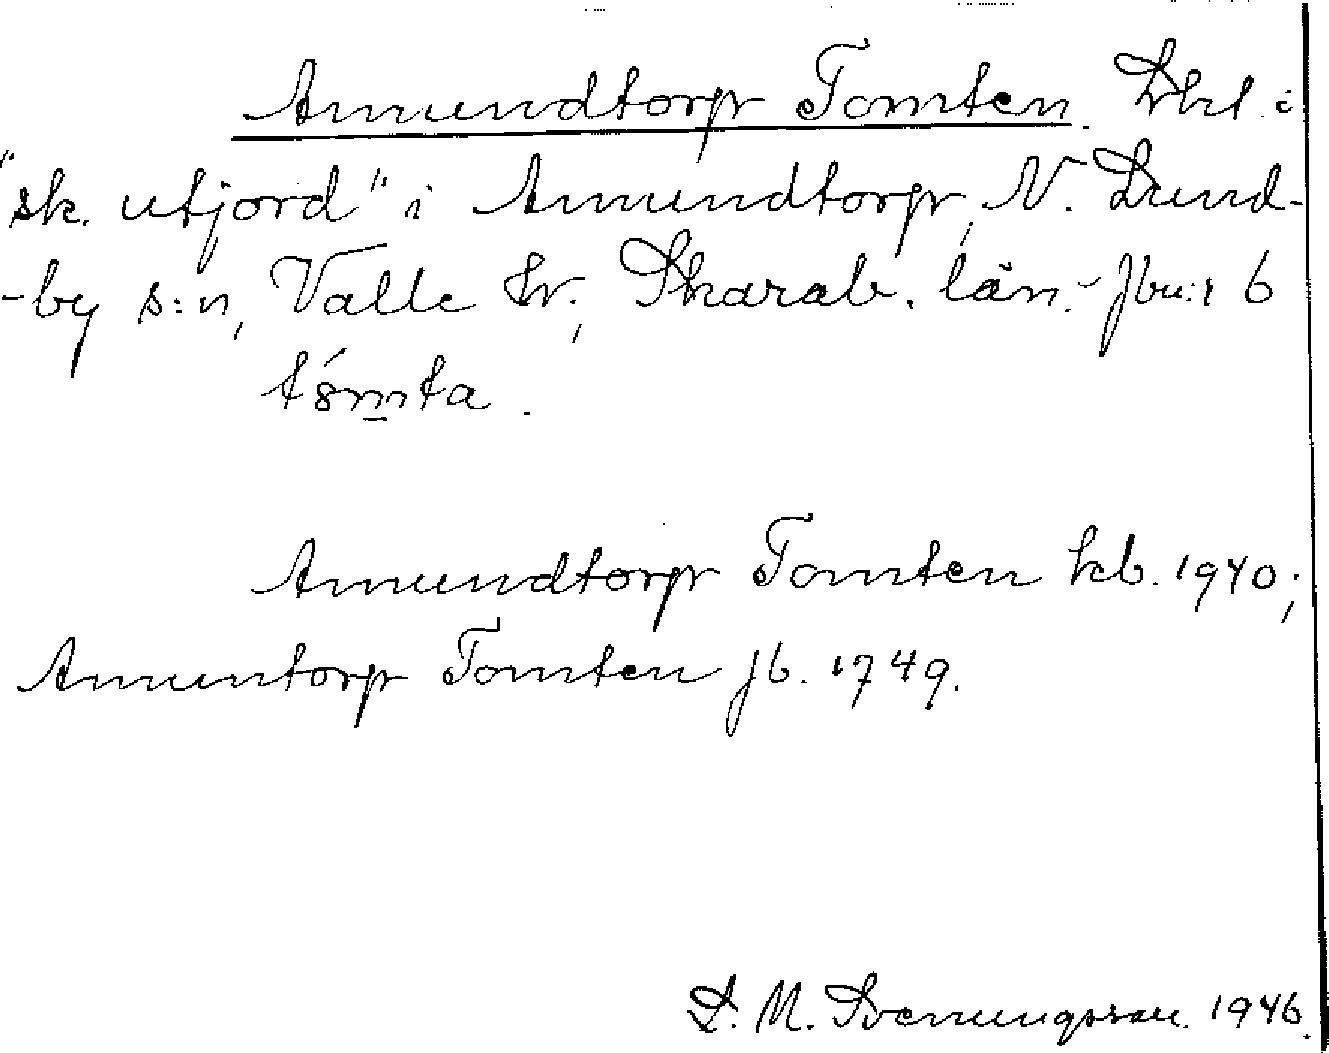 Amundtorp Tomten. Lht. i
"sk. utjord" i Amundtorp, N. Lund-
-by s:n, Valle hr., Skarab. län. Jbu:r 6
tómta.
Amundtorp Tomten kb. 1940;
Amuntorp Tomten jb. 1749.
L. M. Svenungsson. 1946.